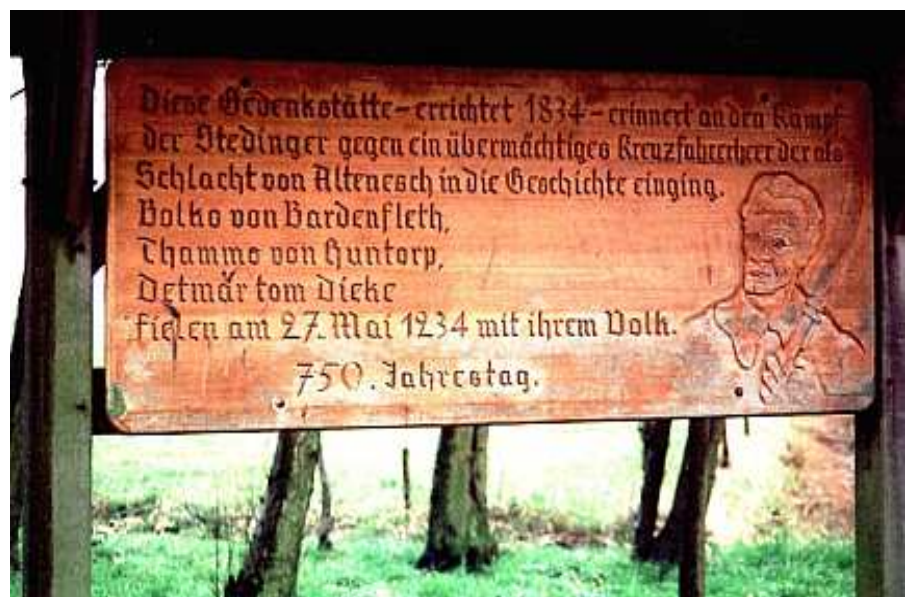 Diese Gedenkstätte – errichtet 1834 – erinnert an den Kampf
der Stedinger gegen ein übermächtiges Kreuzfahrerheer der als
Schlacht von Altenesch in die Geschichte einging.
Bolko von Bardenfleth,
Thammo von Huntorp,
Detmar tom Dieke
fielen am 27. Mai 1234 mit ihrem Volk.
750. Jahrestag.